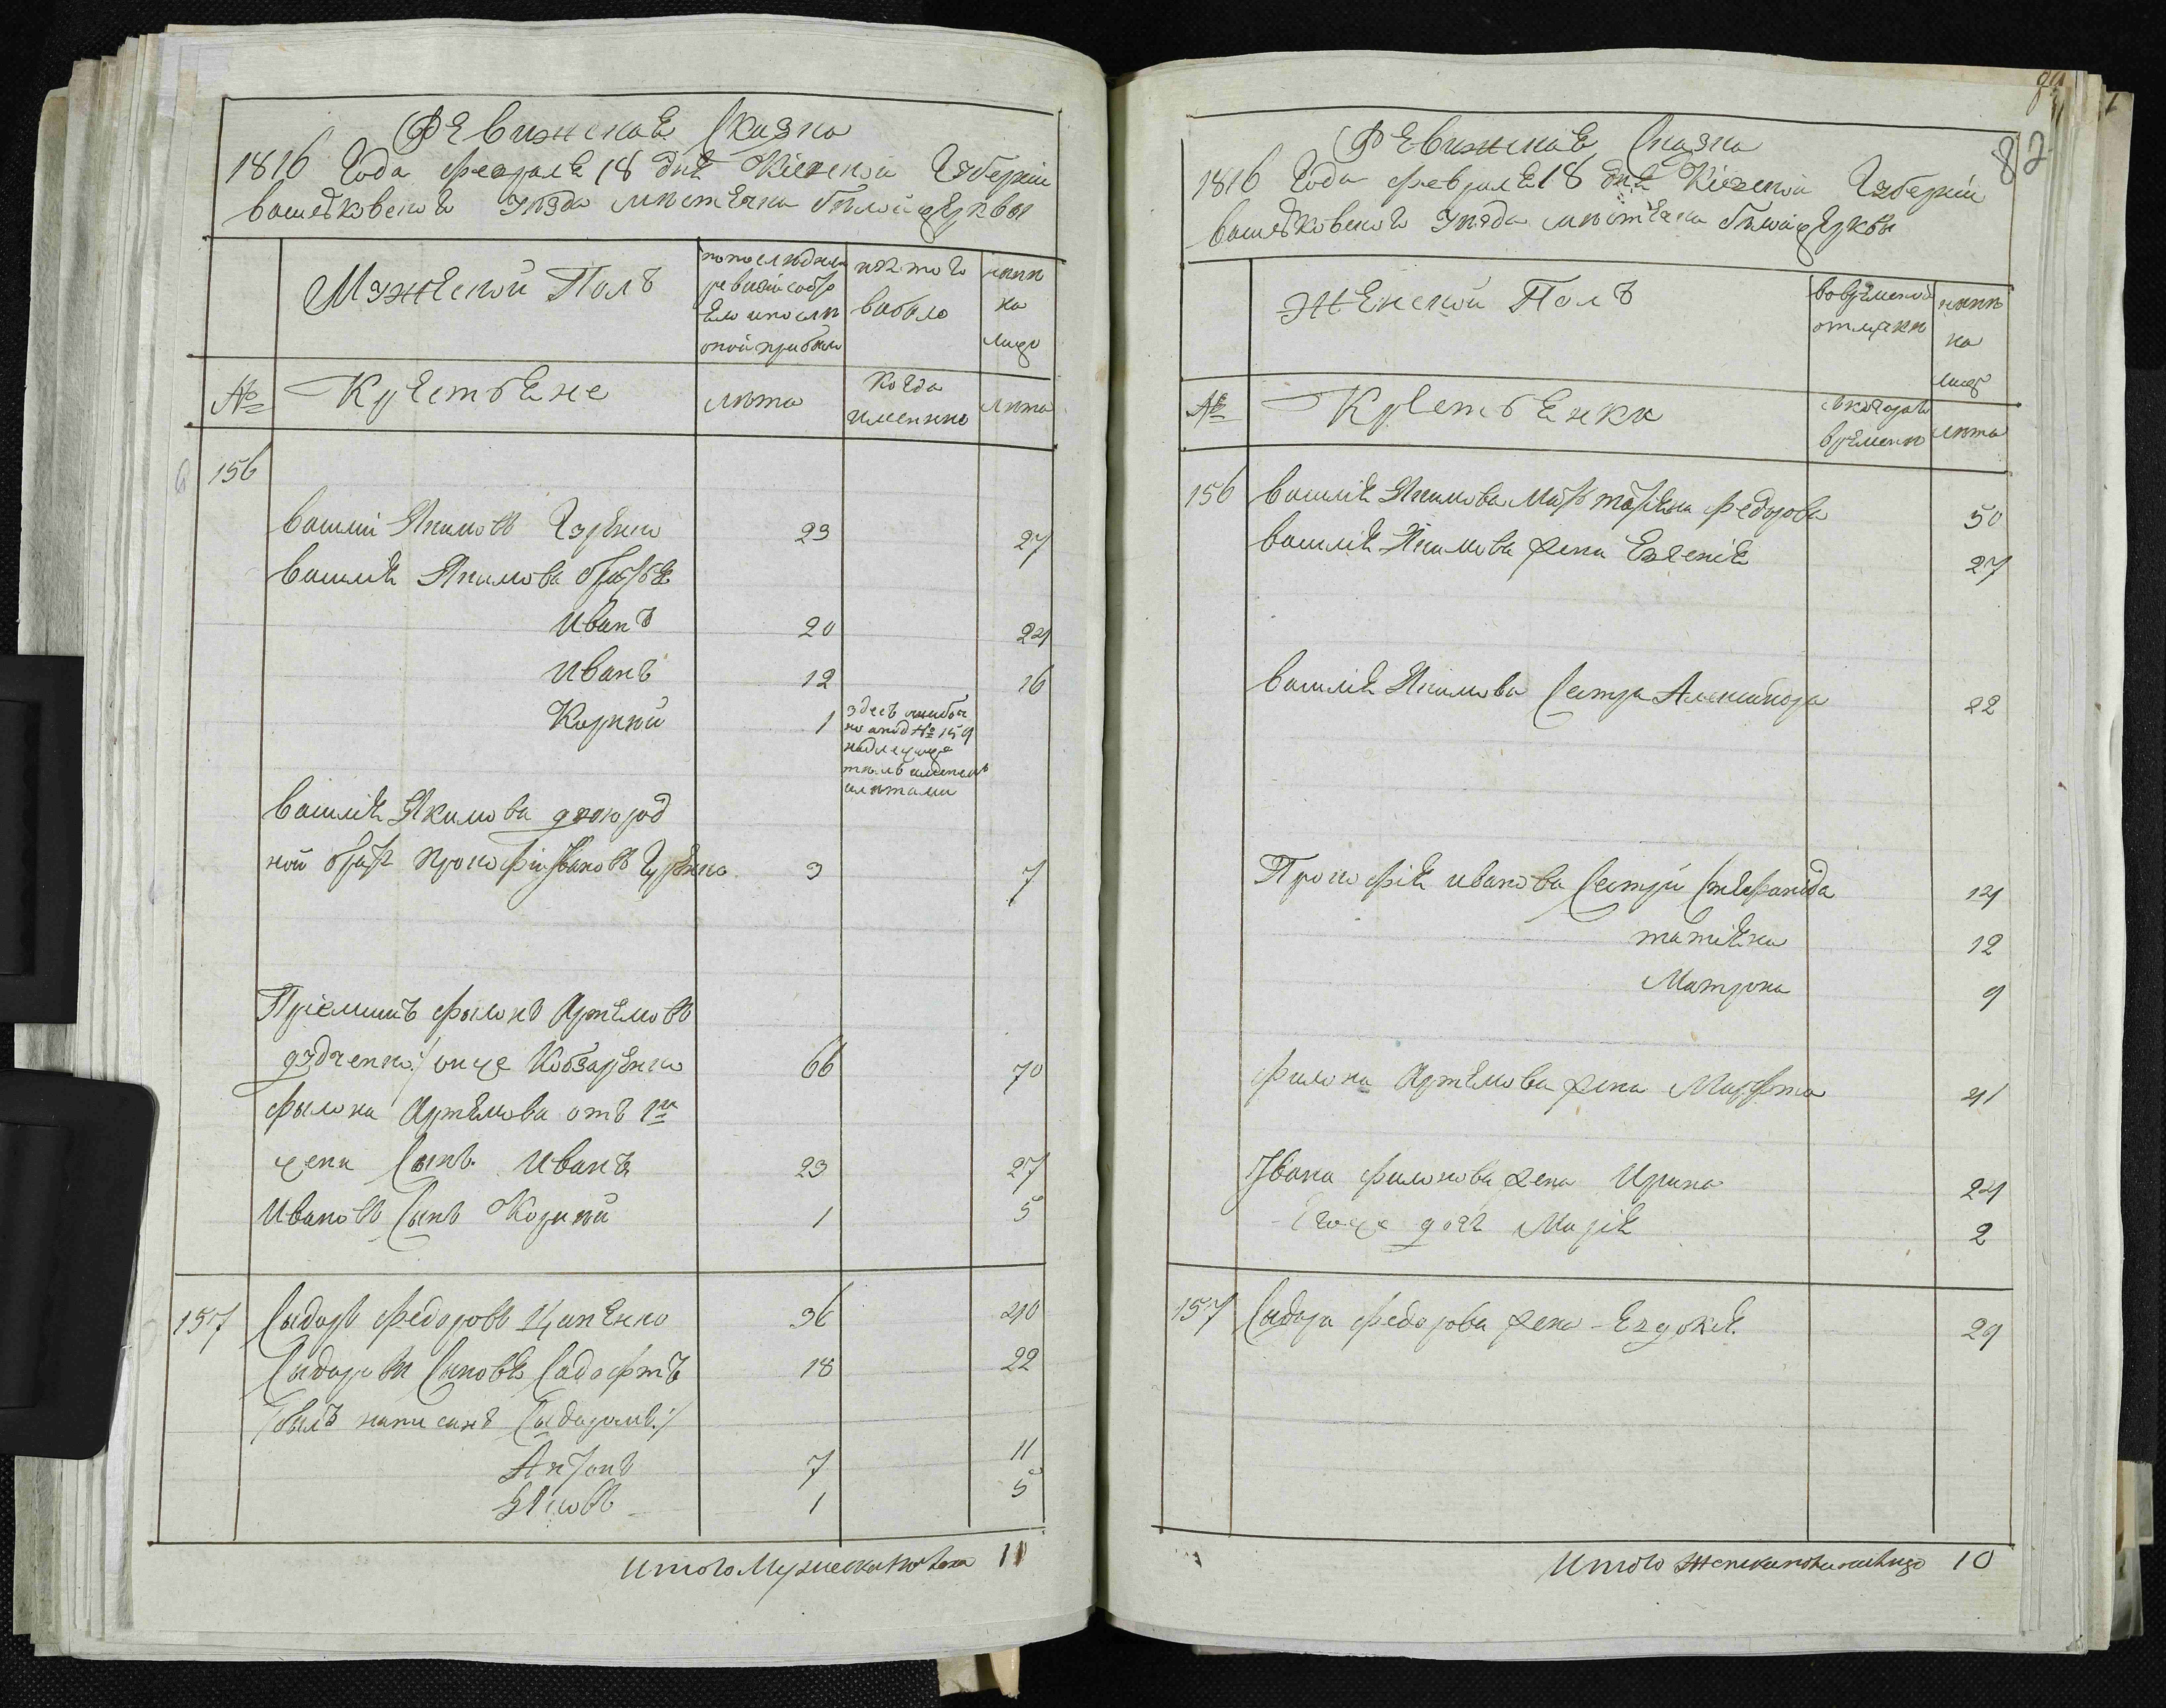 Ревижская Сказка
1816 Года февраля 18 дня Кіевской Губерніи
васильковского уезда местечка белой церквы
Мужеской Полъ
по последней
ревизіи состо
яло и после
оной прибыло
изъ того
выбыло
ныне
на
лицо
№
Крестьяне
лета
когда
именно
лета
156
Василій Якимовъ
23
27
Василія Якимова братья
Иванъ
20
24
Иванъ
12
16
Корній
1
здесь ошибоч
но а под № 159
Василія Якимова двоюрод
ной братъ Прокофій Ивановъ
3
7
Пріемышъ Филонъ Артемовъ
дудченко / онже Кобзаренко
66
70
Филона Артемова отъ 1й
жены Сынъ Иванъ
23
27
Ивановъ Сынъ Корній
1
5
157
Сыдоръ Федоровъ Цапенко
36
40
Сыдоровы Сыновья Садофтъ
18
22
/ былъ написанъ Сыдоромъ /
Антонъ
7
11
Яковъ
1
5
Итого Мужеска пола 11
82
Ревижская Сказка
1816 Года февраля 18 дня Кіевской Губерніи
васильковского уезда местечка белой церквы
Женской Полъ
во временной
отлучке
ныне
на
лицо
№
Крестьянки
с котораго
времени
лета
156
Василія Якимова Мать Татіяна Федорова
50
Василія Якимова жена Евгенія
27
Василія Якимова Сестра Александра
22
Прокофія Иванова Сестры Степанида
14
татіяна
12
Матрона
9
Филона Артемова жена Марфта
41
Ивана Филонова жена Ирина
24
Егоже дочь Марія
2
157
Сыдора Федорова жена Евдокія
29
Итого Женска пола налицо 10